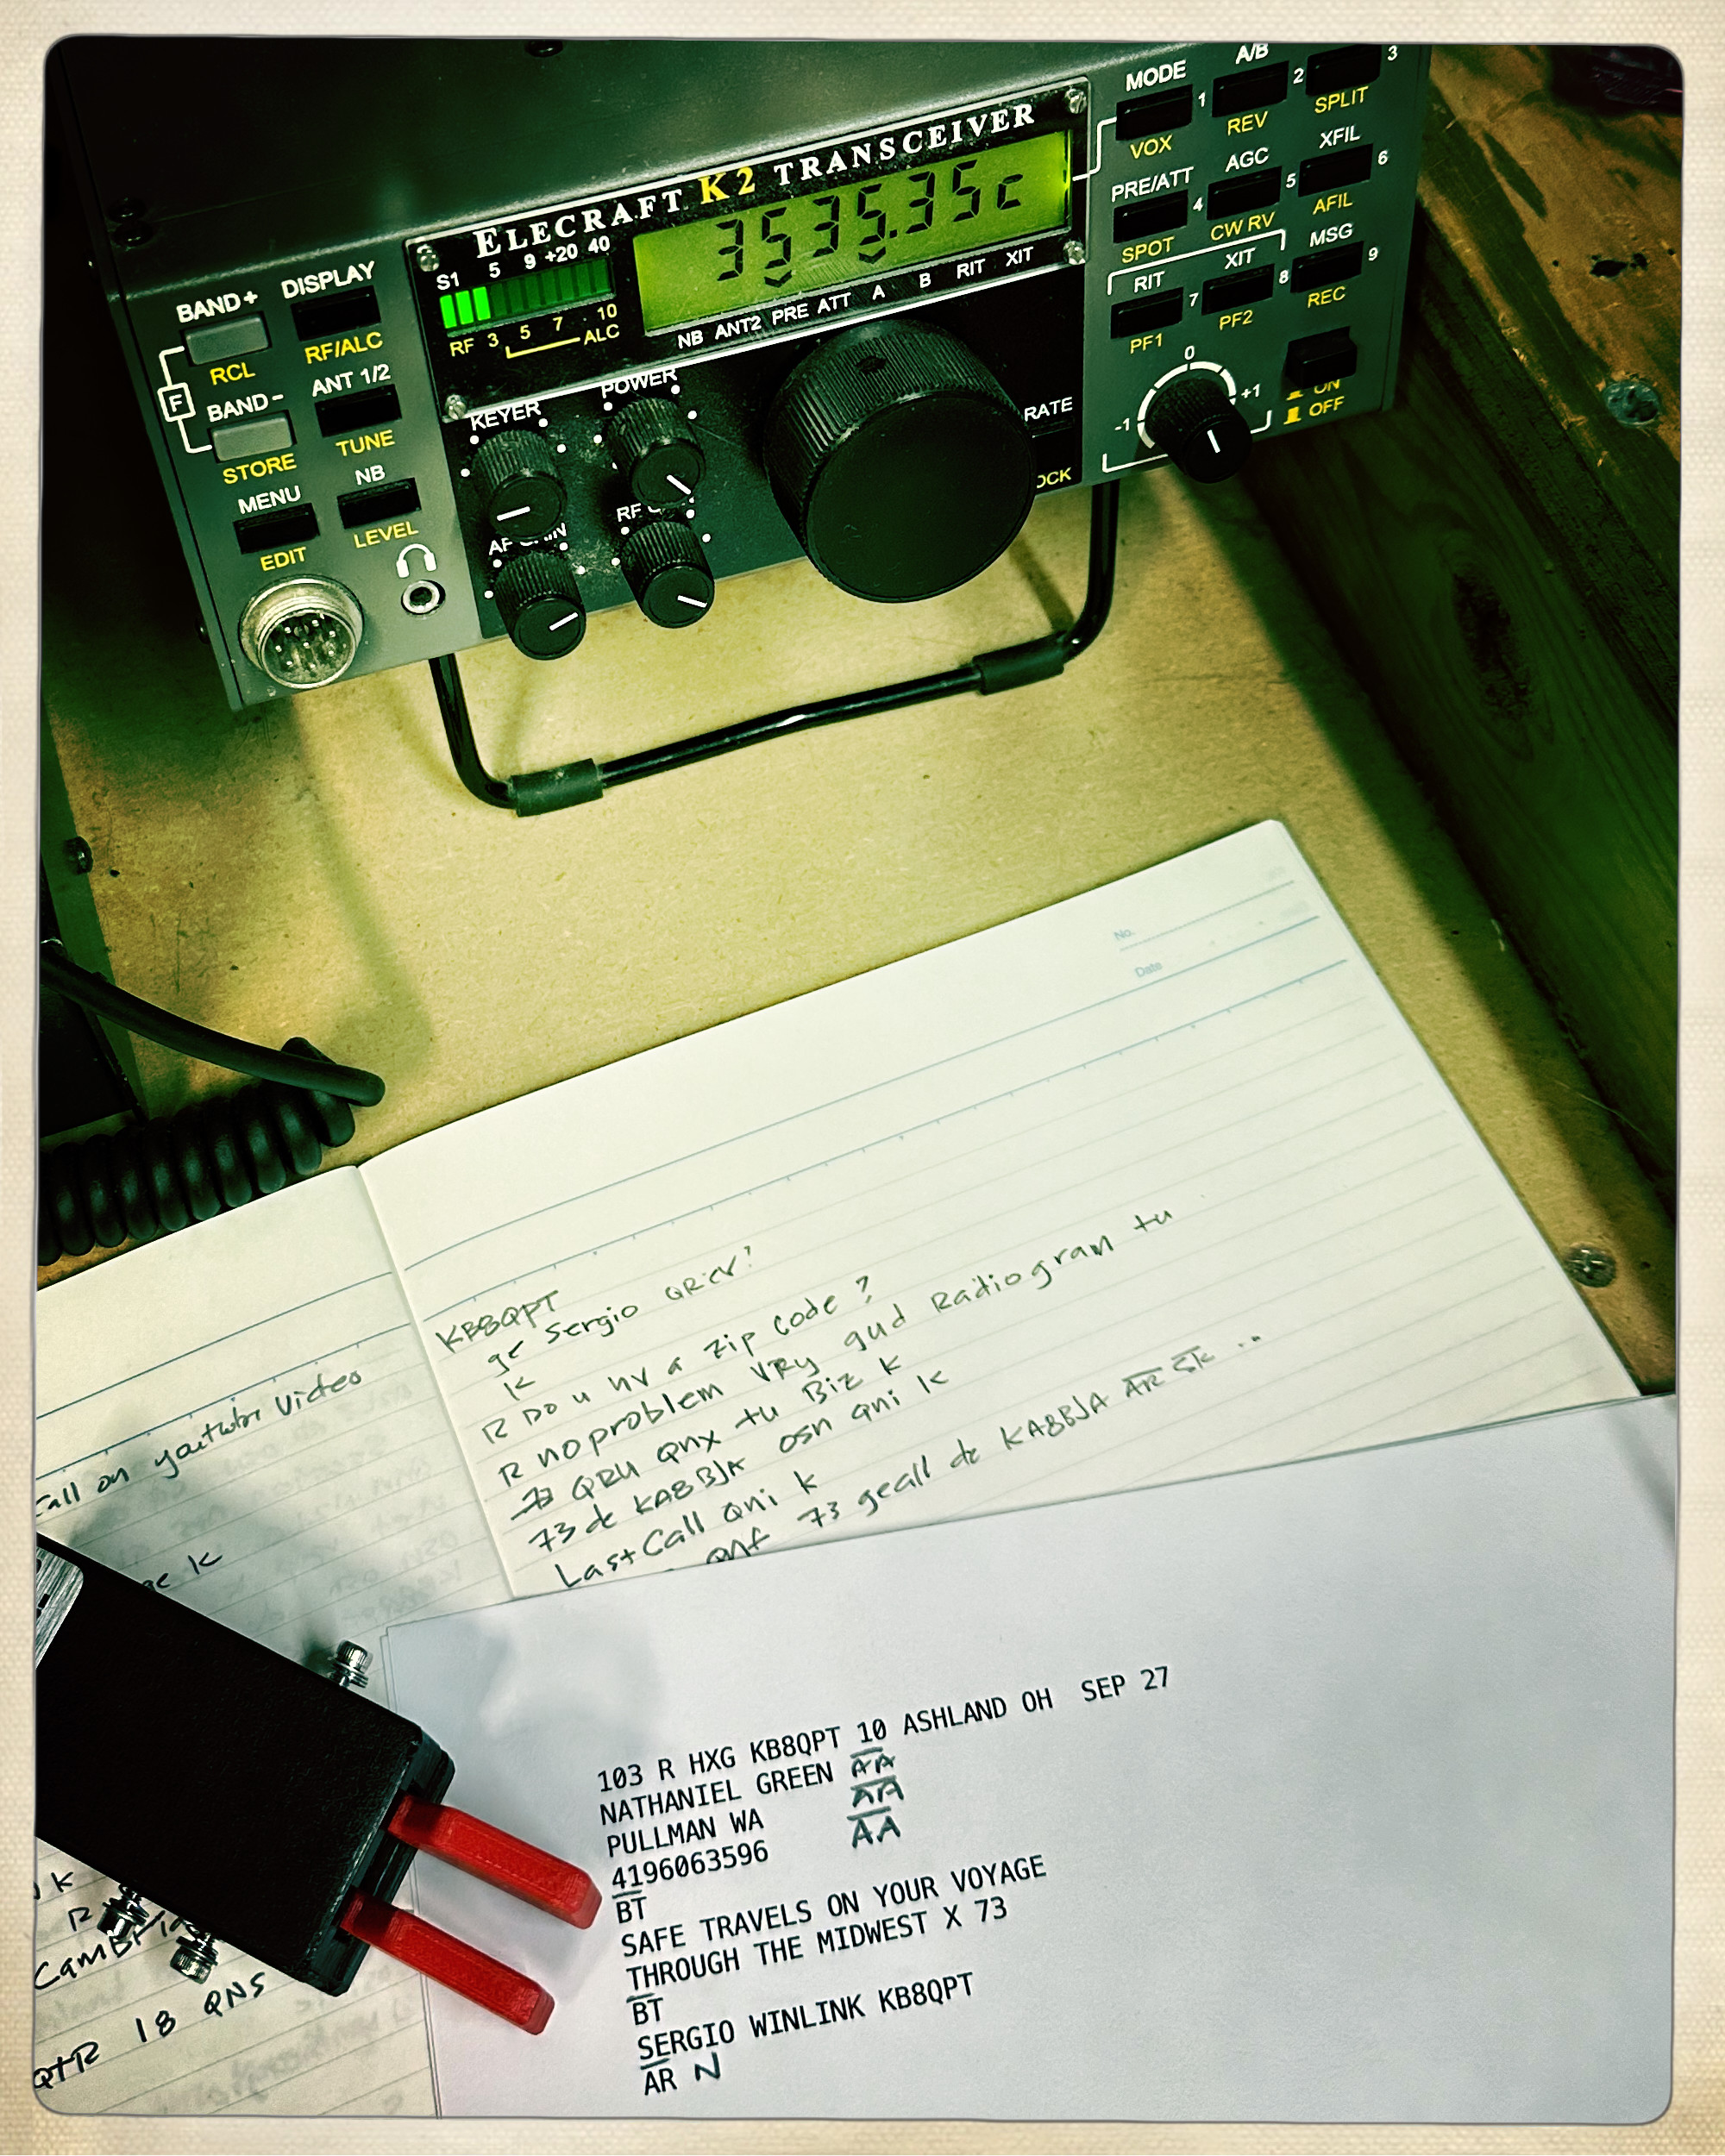 ELECRAFT K2 TRANSCEIVER
3535.35c
S1 5 9 +20 40
RF 3 5 7 . 10
ALC
NB ANT2 PRE ATT A B RIT XIT
BAND+ DISPLAY
RCL RF/ALC
F
BAND- ANT 1/2
STORE TUNE
MENU NB
EDIT LEVEL
KEYER POWER
RF
RATE
MODE A/B
1 2 3
VOX REV SPLIT
PRE/ATT AGC XFIL
4 5 6
SPOT CW RV AFIL
RIT XIT MSG
7 8 9
PF1 PF2 REC
0
-1 +1
ON
OFF
No.
Date
KB8QPT
ge Sergio
K
R Do u hv a zip code ?
R no problem VRy gud Radiogram tu
73 QRU qnx tu Biz K
73 de KA8BJA osn qni K
Last Call Qni K
qnf 73 geall de KA8BJA AR SK ..
Call on youtube Video
K
K
R
QTR 18 QNS
103 R HXG KB8QPT 10 ASHLAND OH SEP 27
NATHANIEL GREEN AA
PULLMAN WA AA
4196063596 AA
BT
SAFE TRAVELS ON YOUR VOYAGE
THROUGH THE MIDWEST X 73
BT
SERGIO WINLINK KB8QPT
AR N